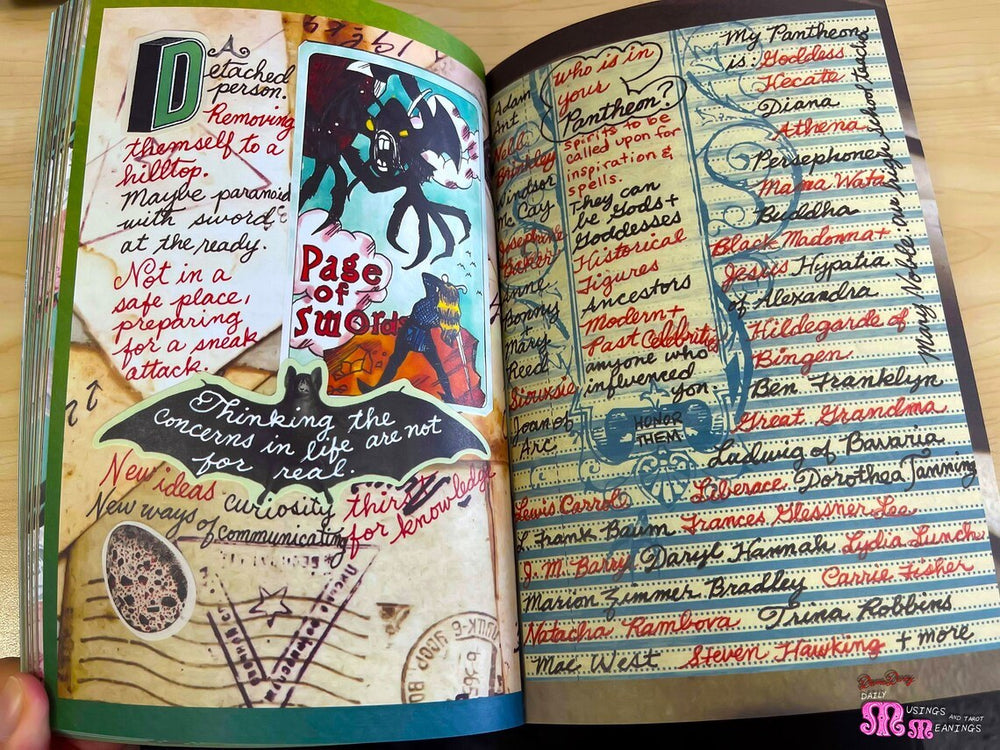 A
Detached
person.
Removing
themself to a
hilltop.
Maybe paranoid
with sword
at the ready.
Not in a
safe place,
preparing
for a sneak
attack.
Page
of
swords
Thinking the
concerns in life are not
for real.
New ideas curiosity thirst
New ways of communicating for knowledge
Who is in
your
Pantheon?
spirits to be
called upon for
inspiration &
spells.
They can
be Gods +
Goddesses
Historical
Figures
Ancestors
Modern +
Past Celebrities
anyone who
influenced
you.
HONOR
THEM
Adam
Ant
Nell
Brinkley
Windsor
McCay
Josephine
Baker
Anne
Bonny
+
Mary
Reed
Siouxsie
Joan of
Arc
My Pantheon
is: Goddess
Hecate
Diana
Athena
Persephone
Mama Wata
Buddha
Black Madonna +
Jesus Hypatia
of Alexandra
Hildegarde of
Bingen
Ben Franklyn
Great Grandma
Ludwig of Bavaria
Mary Noble our high school teacher
Liberace Dorothea Tanning
Lewis Carrol
L. Frank Baum Frances Glessner Lee
J. M. Barry Daryl Hannah Lydia Lunch
Marion Zimmer Bradley Carrie Fisher
Natacha Rambova Trina Robbins
Mae West Steven Hawking + more
DAILY
MUSINGS
AND TAROT
MEANINGS